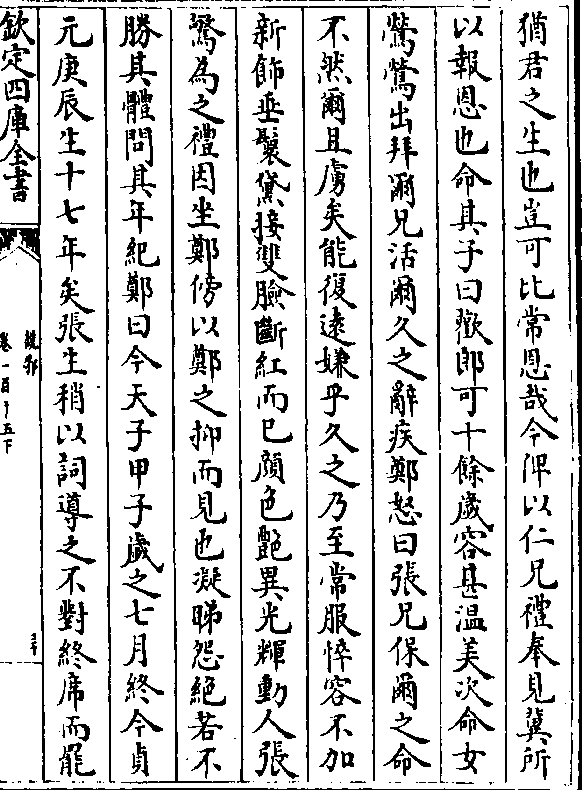 猶君之生也豈可比常恩哉今俾以仁兄禮奉見冀所
以報恩也命其子曰歡郎可十餘歲容甚温美次命女
鶯鶯出拜爾兄活爾久之辭疾鄭怒曰張兄保爾之命
不然爾且虜矣能復逺嫌乎久之乃至常服悴容不加
新飾垂鬟黛接雙臉斷紅而已顔色艶異光輝動人張
驚為之禮因坐鄭傍以鄭之抑而見也凝睇怨絶若不
勝其體問其年紀鄭曰今天子甲子歲之七月終今貞
元庚辰生十七年矣張生稍以詞導之不對終席而罷
欽定四庫全書
說郛
卷一百十五下